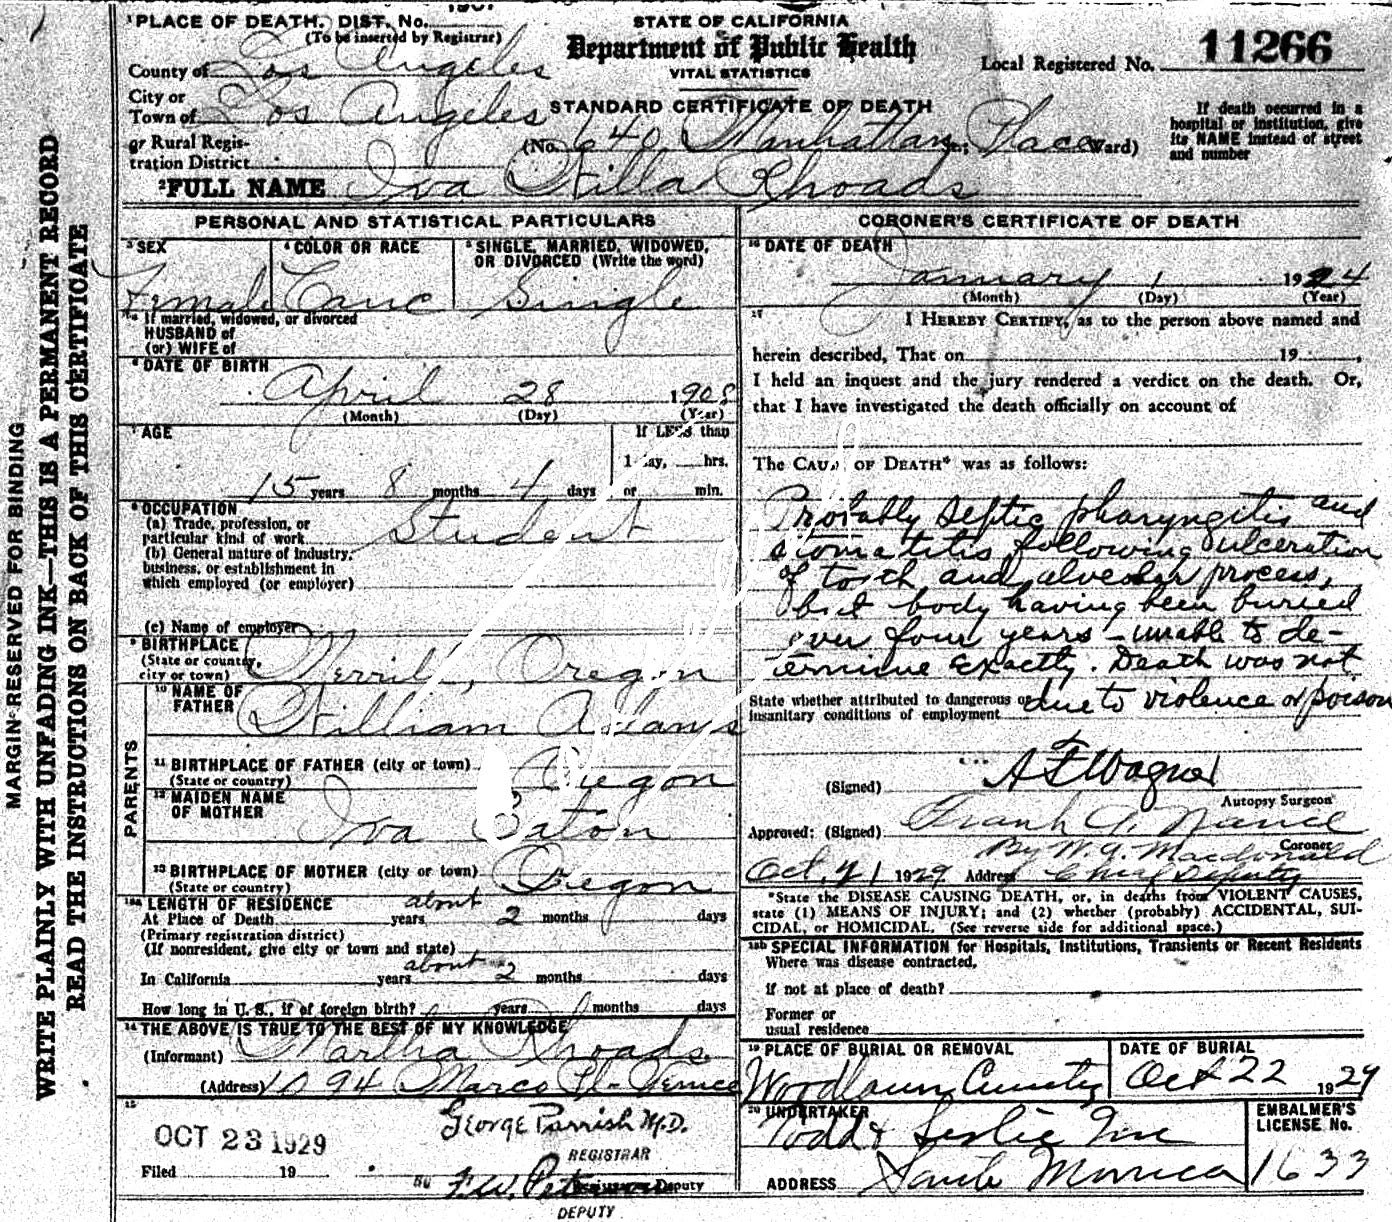 ¹PLACE OF DEATH. DIST. No.
(To be inserted by Registrar)
STATE OF CALIFORNIA
Department of Public Health
VITAL STATISTICS
STANDARD CERTIFICATE OF DEATH
Local Registered No. 11266
County of Los Angeles
City or
Town of Los Angeles
or Rural Regis-
tration District
(No. 640 Manhattan Place Ward)
If death occurred in a
hospital or institution, give
its NAME instead of street
and number
²FULL NAME Iva Willa Rhoads
PERSONAL AND STATISTICAL PARTICULARS
³SEX
Female
⁴COLOR OR RACE
Cauc
⁵SINGLE, MARRIED, WIDOWED,
OR DIVORCED (Write the word)
Single
⁵ᵃ If married, widowed, or divorced
HUSBAND of
(or) WIFE of
⁶DATE OF BIRTH
April 28 1908
(Month) (Day) (Year)
⁷AGE
If LESS than
1 day, hrs.
15 years 8 months 4 days or min.
⁸OCCUPATION
(a) Trade, profession, or
particular kind of work Student
(b) General nature of industry,
business, or establishment in
which employed (or employer)
(c) Name of employer
⁹BIRTHPLACE
(State or country,
city or town) Merrill, Oregon
PARENTS
¹⁰NAME OF
FATHER William Adams
¹¹BIRTHPLACE OF FATHER (city or town)
(State or country) Oregon
¹²MAIDEN NAME
OF MOTHER Iva Eaton
¹³BIRTHPLACE OF MOTHER (city or town)
(State or country) Oregon
¹³ᵃLENGTH OF RESIDENCE
At Place of Death years about 2 months days
(Primary registration district)
(If nonresident, give city or town and state)
In California years about 2 months days
How long in U. S., if of foreign birth? years months days
¹⁴THE ABOVE IS TRUE TO THE BEST OF MY KNOWLEDGE
(Informant) Martha Rhoads
(Address) 1094 Marco Pl- Venice
¹⁵
OCT 23 1929
Filed 19
George Parrish M.D.
REGISTRAR
By F.W. Peterson
Deputy
DEPUTY
CORONER'S CERTIFICATE OF DEATH
¹⁶DATE OF DEATH
January 1 1924
(Month) (Day) (Year)
¹⁷ I HEREBY CERTIFY, as to the person above named and
herein described, That on 19 ,
I held an inquest and the jury rendered a verdict on the death. Or,
that I have investigated the death officially on account of
The CAUSE OF DEATH* was as follows:
Probably septic pharyngitis and
stomatitis following ulceration
of tooth and alveolar process,
but body having been buried
over four years - unable to de-
termine exactly. Death was not
due to violence or poison
State whether attributed to dangerous or
insanitary conditions of employment
(Signed) A F Wagner
Autopsy Surgeon
Approved: (Signed) Frank A. Nance
Coroner
By W. A. Macdonald
Oct. 21 1929 Address Chief Deputy
*State the DISEASE CAUSING DEATH, or, in deaths from VIOLENT CAUSES,
state (1) MEANS OF INJURY; and (2) whether (probably) ACCIDENTAL, SUI-
CIDAL, or HOMICIDAL. (See reverse side for additional space.)
¹⁸ᵇ SPECIAL INFORMATION for Hospitals, Institutions, Transients or Recent Residents
Where was disease contracted,
if not at place of death?
Former or
usual residence
¹⁹PLACE OF BURIAL OR REMOVAL
Woodlawn Cemetery
DATE OF BURIAL
Oct 22 1929
²⁰UNDERTAKER
Todd & Leslie Inc
ADDRESS Santa Monica
EMBALMER'S
LICENSE No.
1633
MARGIN RESERVED FOR BINDING
WRITE PLAINLY WITH UNFADING INK—THIS IS A PERMANENT RECORD
READ THE INSTRUCTIONS ON BACK OF THIS CERTIFICATE